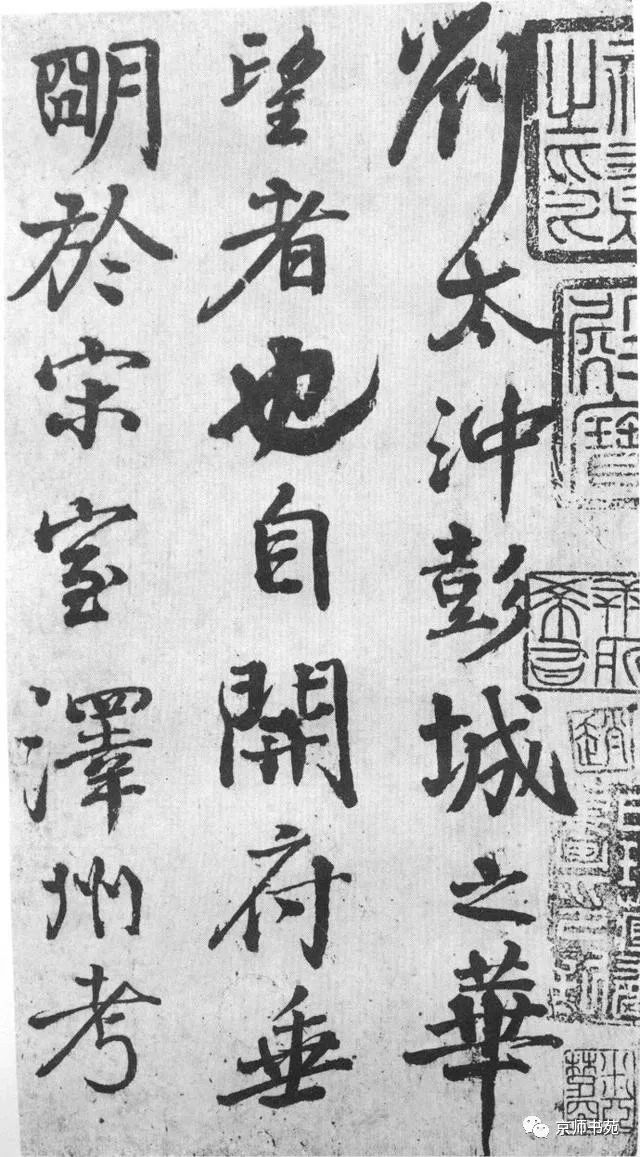 劉太沖彭城之華
望者也自開府垂
朙於宋室澤州考
京师书苑